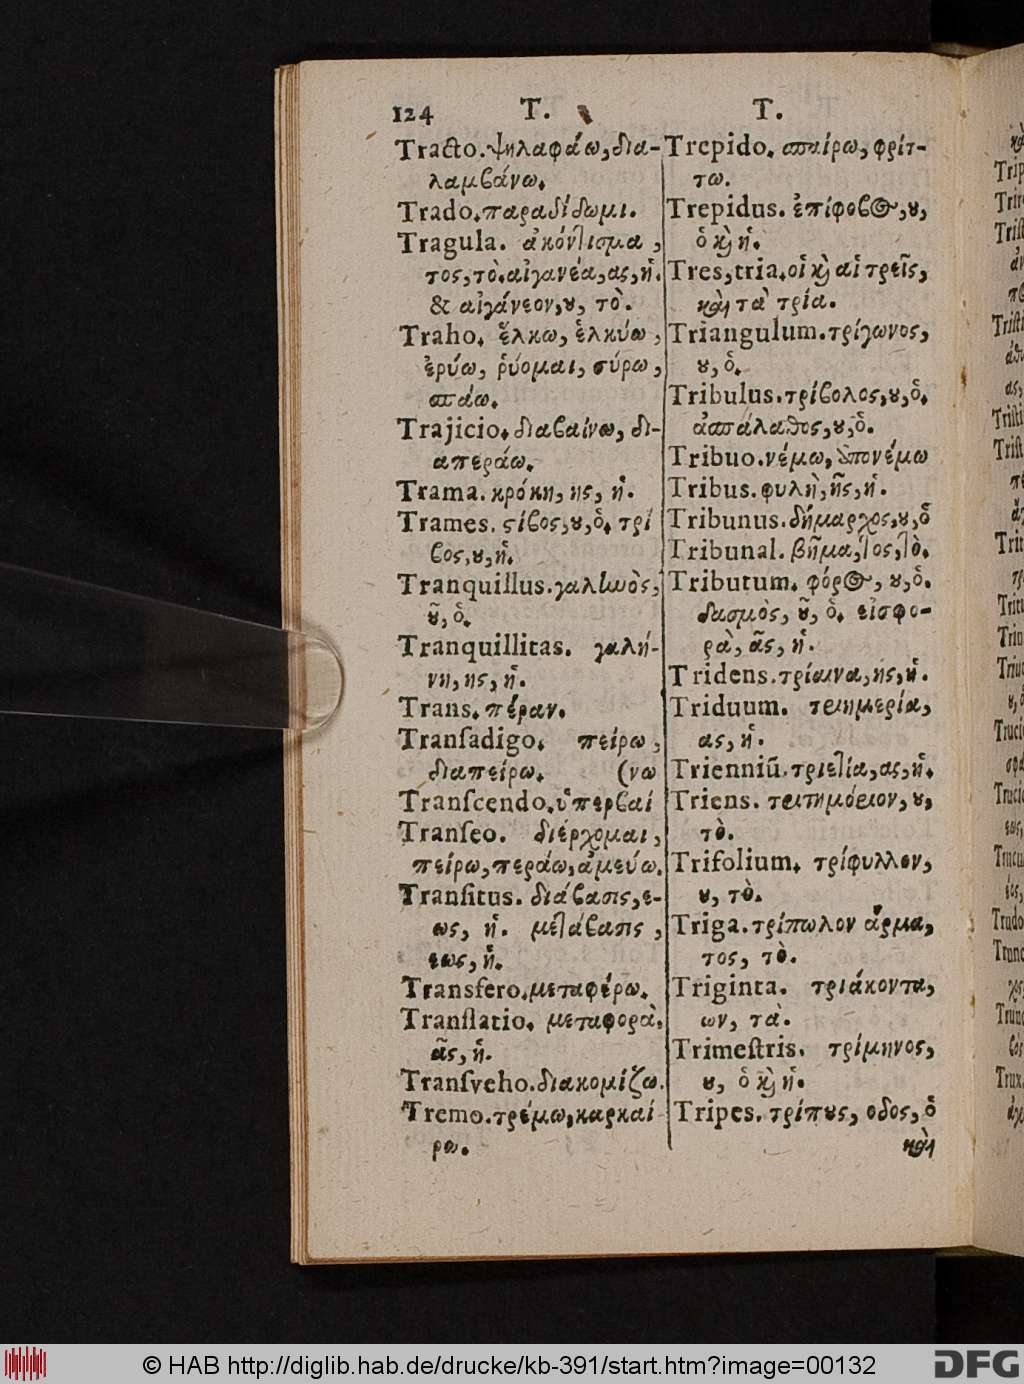 124 T. T.
Tracto. ψηλαφάω, δια-
λαμβάνω.
Trado. παραδίδωμι.
Tragula. ἀκόντισμα,
τος, τὸ. αἰγανέα, ας, ἡ.
& αἰγάνεον, ȣ, τὸ.
Traho. ἕλκω, ἑλκύω,
ἐρύω, ῥύομαι, σύρω,
σπάω.
Trajicio. διαβαίνω, δι-
απεράω.
Trama. κρόκη, ης, ἡ.
Trames. ϛίβος, ȣ, ὁ. τρί
βος, ȣ, ἡ.
Tranquillus. γαλίωὸς,
ȣ͂, ὁ.
Tranquillitas. γαλή-
νη, ης, ἡ.
Trans. πέραν.
Tranſadigo. πείρω,
διαπείρω. (νω
Tranſcendo. ὑπερβαί
Tranſeo. διέρχομαι,
πείρω, περάω, ἀμεύω.
Tranſitus. διάβασις, ε-
ως, ἡ. μετάβασις,
εως, ἡ.
Transfero. μεταφέρω.
Tranſlatio. μεταφορὰ,
ᾶς, ἡ.
Tranſveho. διακομίζω.
Tremo. τρέμω, καρκαί
ρω.
Trepido. σπαίρω, φρίτ-
τω.
Trepidus. ἐπίφοβος, ȣ,
ὁ κὶ ἡ.
Tres, tria. οἱ κὶ αἱ τρεῖς,
καὶ τὰ τρία.
Triangulum. τρίγωνος,
ȣ, ὁ.
Tribulus. τρίβολος, ȣ, ὁ.
ἀσπάλαθος, ȣ, ὁ.
Tribuo. νέμω, ἀπονέμω
Tribus. φυλὴ, ῆς, ἡ.
Tribunus. δήμαρχος, ȣ, ὁ
Tribunal. βῆμα, τος, τὸ.
Tributum. φόρος, ȣ, ὁ.
δασμὸς, ȣ͂, ὁ. εἰσφο-
ρὰ, ᾶς, ἡ.
Tridens. τρίαινα, ης, ἡ.
Triduum. τριημερία,
ας, ἡ.
Trienniũ. τριετία, ας, ἡ.
Triens. τριτημόριον, ȣ,
τὸ.
Trifolium. τρίφυλλον,
ȣ, τὸ.
Triga. τρίπωλον ἅρμα,
τος, τὸ.
Triginta. τριάκοντα,
ων, τὰ.
Trimeſtris. τρίμηνος,
ȣ, ὁ κὶ ἡ.
Tripes. τρίπȣς, οδος, ὁ
καὶ
© HAB http://diglib.hab.de/drucke/kb-391/start.htm?image=00132
DFG